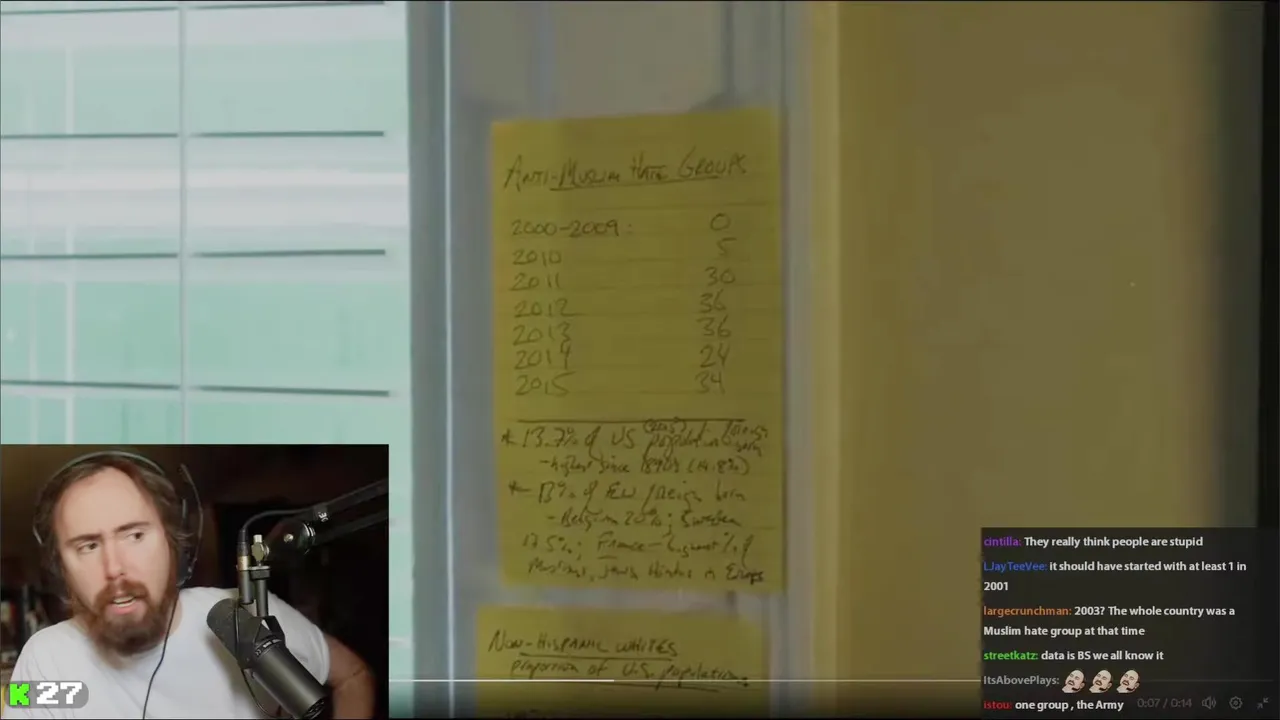 ANTI-MUSLIM HATE GROUPS
2000-2009: 0
2010 5
2011 30
2012 36
2013 36
2014 24
2015 34
* 13.7% of US (2015) population foreign born
- highest since 1890s (14.8%)
* 13% of foreign born
- Belgium 20%; Sweden
17.5%; France - highest % of
Muslims, Jews, Hindus in Europe
NON-HISPANIC WHITES
proportion of U.S. population:
cintilla: They really think people are stupid
LJayTeeVee: it should have started with at least 1 in
2001
largecrunchman: 2003? The whole country was a
Muslim hate group at that time
streetkatz: data is BS we all know it
ItsAbovePlays:
istou: one group , the Army
0:07 / 0:14
K 27